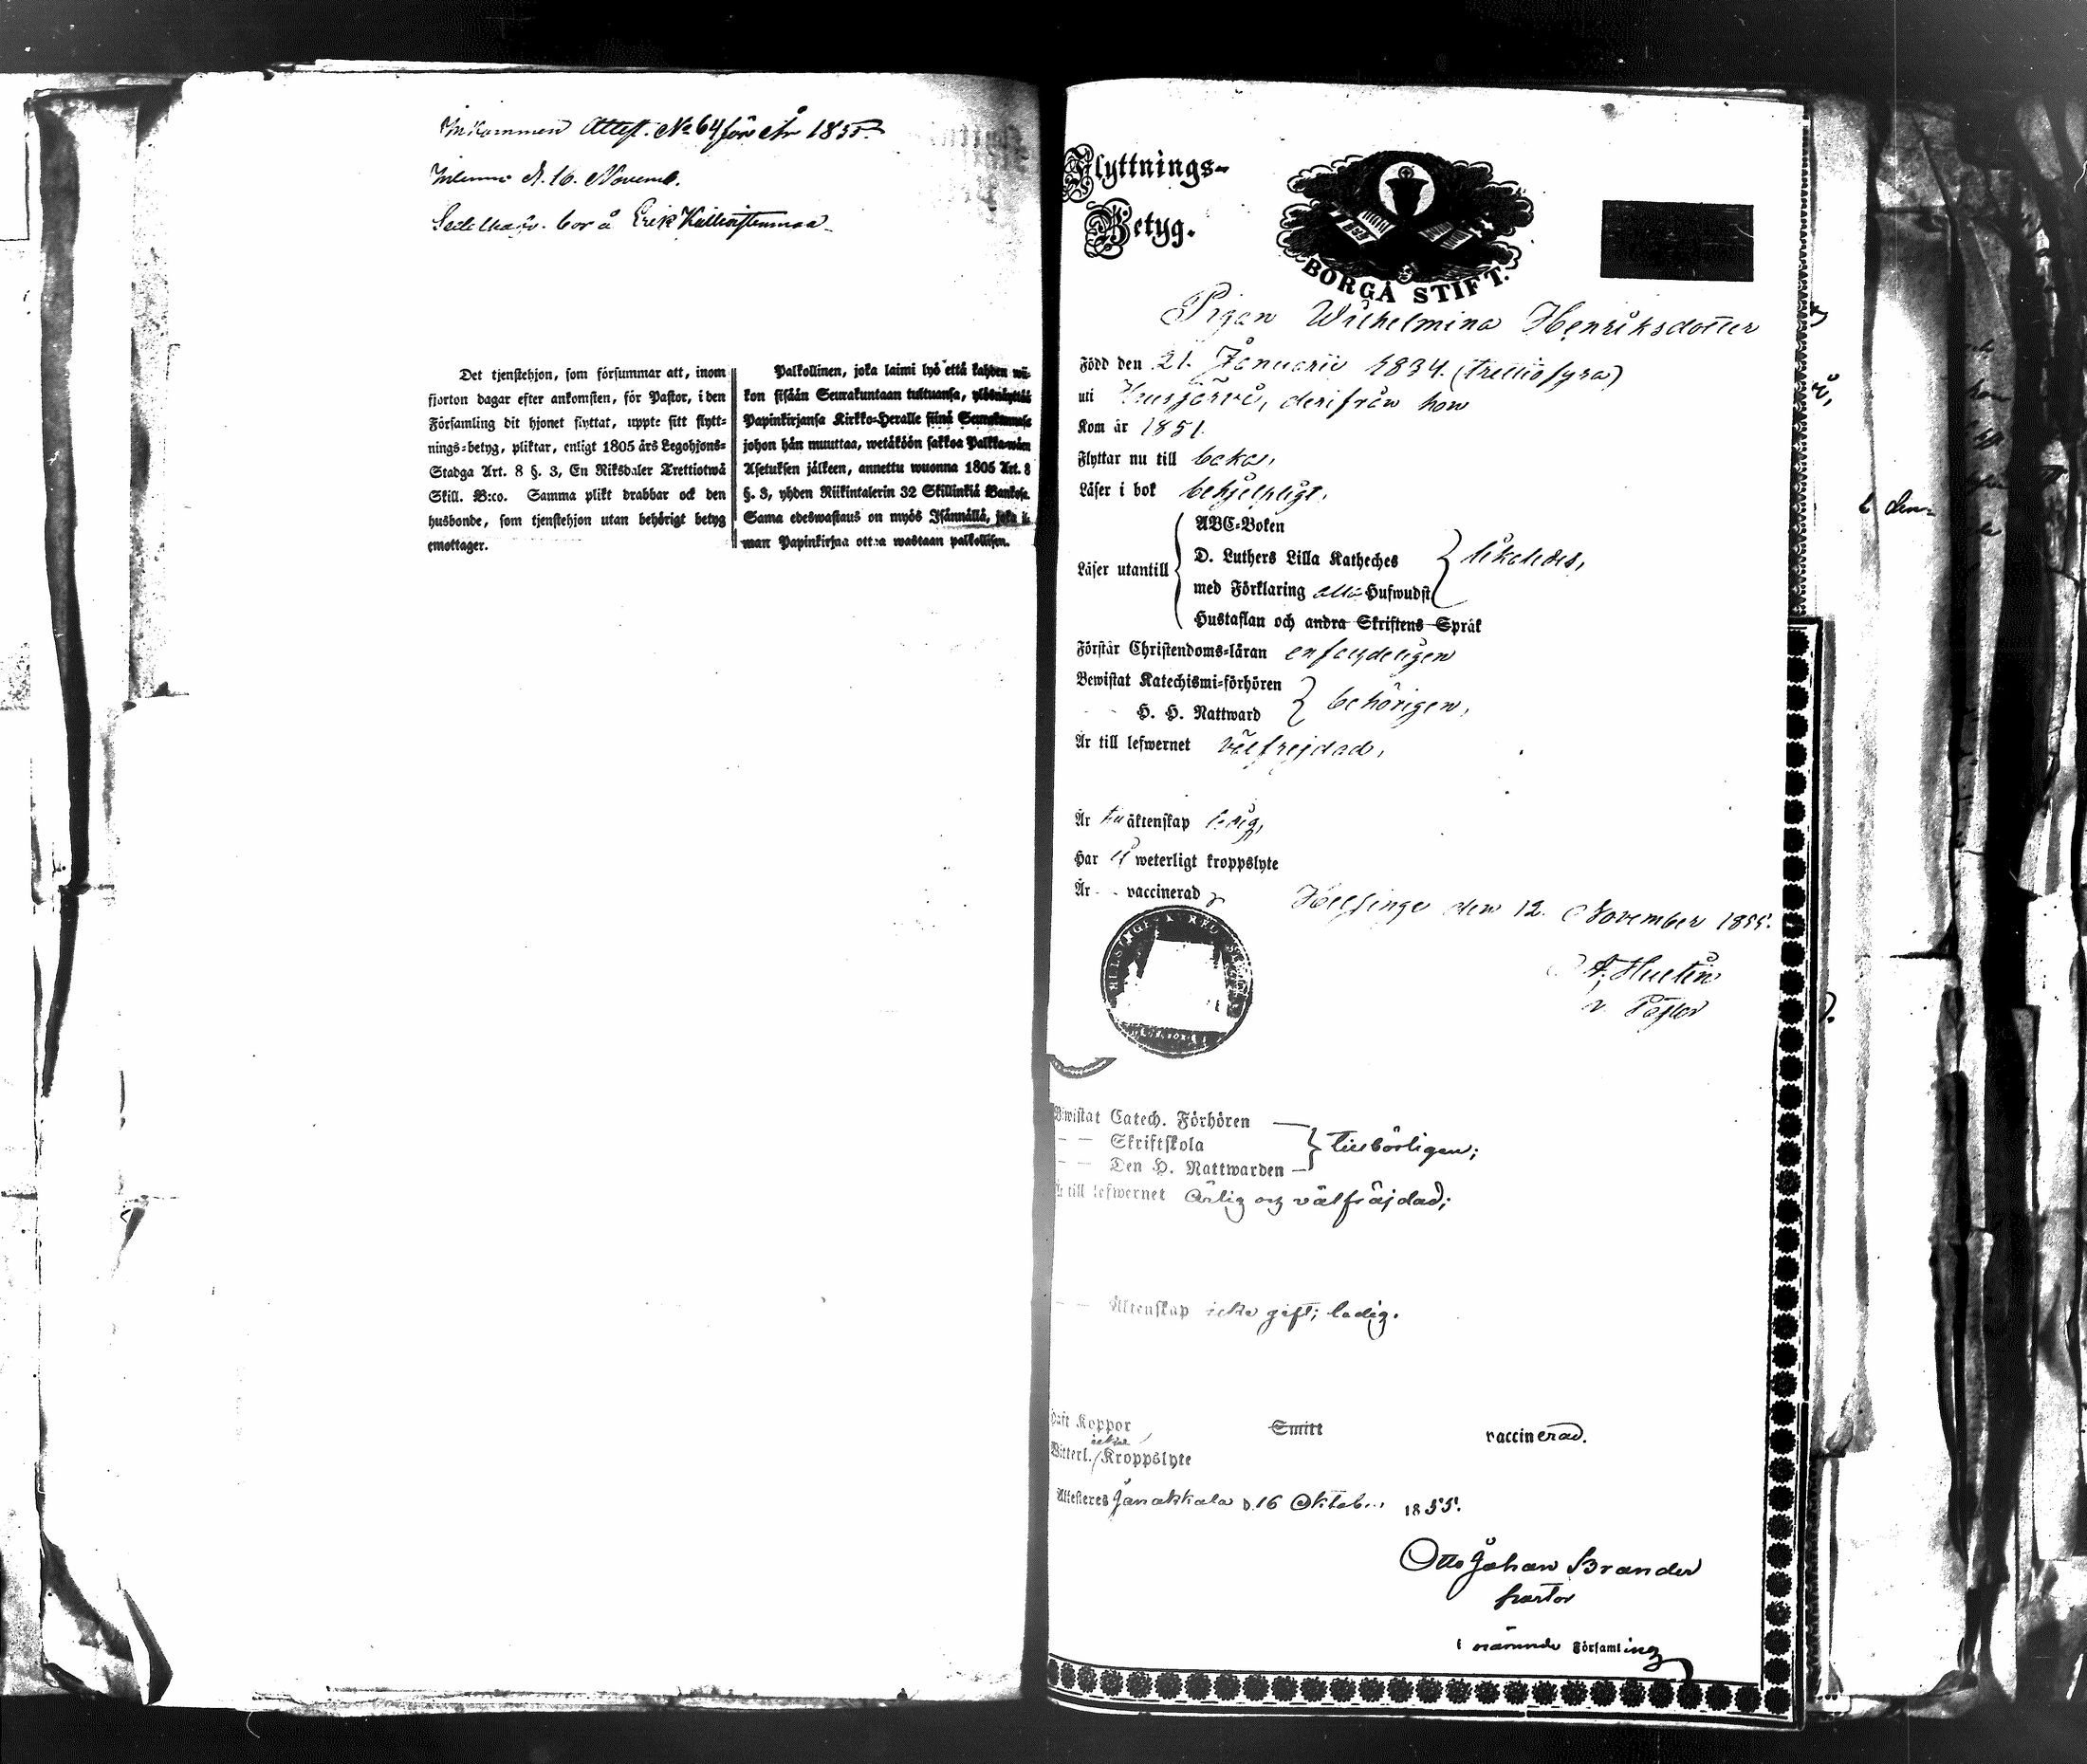 Inkommen Attest. No 64 för År 1855.
d. 16. Novemb.
bor å Erik
Det tjenstehjon, som försummar att, inom
fjorton dagar efter ankomsten, för Pastor, i den
Församling dit hjonet flyttat, uppte sitt flytt-
nings-betyg, pliktar, enligt 1805 års Legohjons-
Stadga Art. 8 §. 3, En Riksdaler Trettiotwå
Skill. B:co. Samma plikt drabbar ock den
husbonde, som tjenstehjon utan behörigt betyg
emottager.
Palkollinen, joka laimi lyö että kahden wii-
kon sisään Seurakuntaan tultuansa, ylösnäyttää
Papinkirjansa Kirkko-Heralle siinä Seurakunnasa
johon hän muuttaa, wetäköön sakkoa Palkka-wäen
Asetuksen jälkeen, annettu wuonna 1805 Art. 8
§. 3, yhden Riikintalerin 32 Skillinkiä Bankosa.
Sama edeswastaus on myös Isännällä, joka il-
man Papinkirjaa ottaa wastaan palkollisen.
Flyttnings-
Betyg.
BORGÅ STIFT.
Pigan Wilhelmina Henriksdotter
Född den 21. Januarii 1834. (trettiofyra)
uti Hausjärvi, derifrån hon
Kom år 1851.
Flyttar nu till
Läser i bok behjelpligt,
Läser utantill
ABC-Boken
D. Luthers Lilla Katheches
med Förklaring alla Hufwudst
likaledes,
Hustaflan och andra Skriftens Språk
Förstår Christendoms-läran enfaldeligen
Bewistat Katechismi-förhören
H. H. Nattward
behörigen,
Är till lefwernet välfrejdad,
Är till äktenskap ledig,
Har ej weterligt kroppslyte
Är vaccinerad
Helsinge den 12. November 1855.
v. Pastor
Bewistat Catech. Förhören
— — Skriftskola
— — Den H. Nattwarden
tillbörligen;
Är till lefwernet ärlig och välfräjdad;
— — Äktenskap icke gift; ledig.
Haft Koppor
Smitt
vaccinerad.
icke
Witterl. Kroppslyte
Attesteras Janakkala d. 16 Oktob. 1855.
Otto Johan Brander
pastor
i nämnde Församling